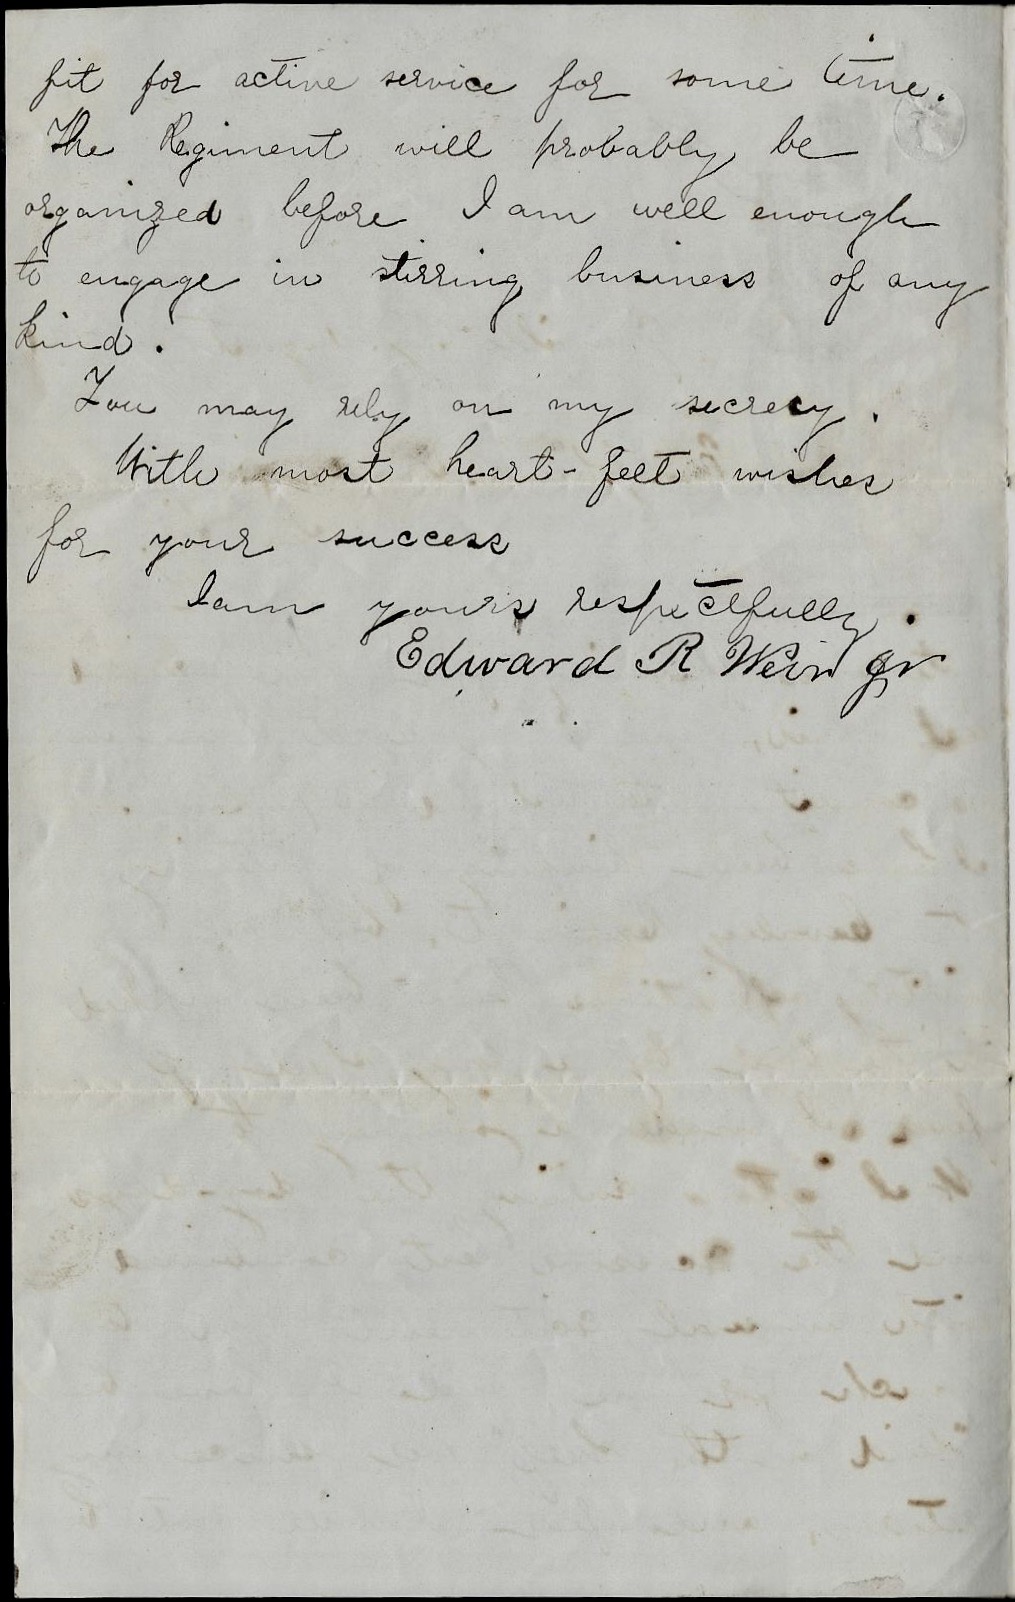 fit for active service for some time.
The Regiment will probably be
organized before I am well enough
to engage in stirring business of any
kind.
You may rely on my secrecy.
With most heart-felt wishes
for your success
I am yours respectfully.
Edward R Weir Jr